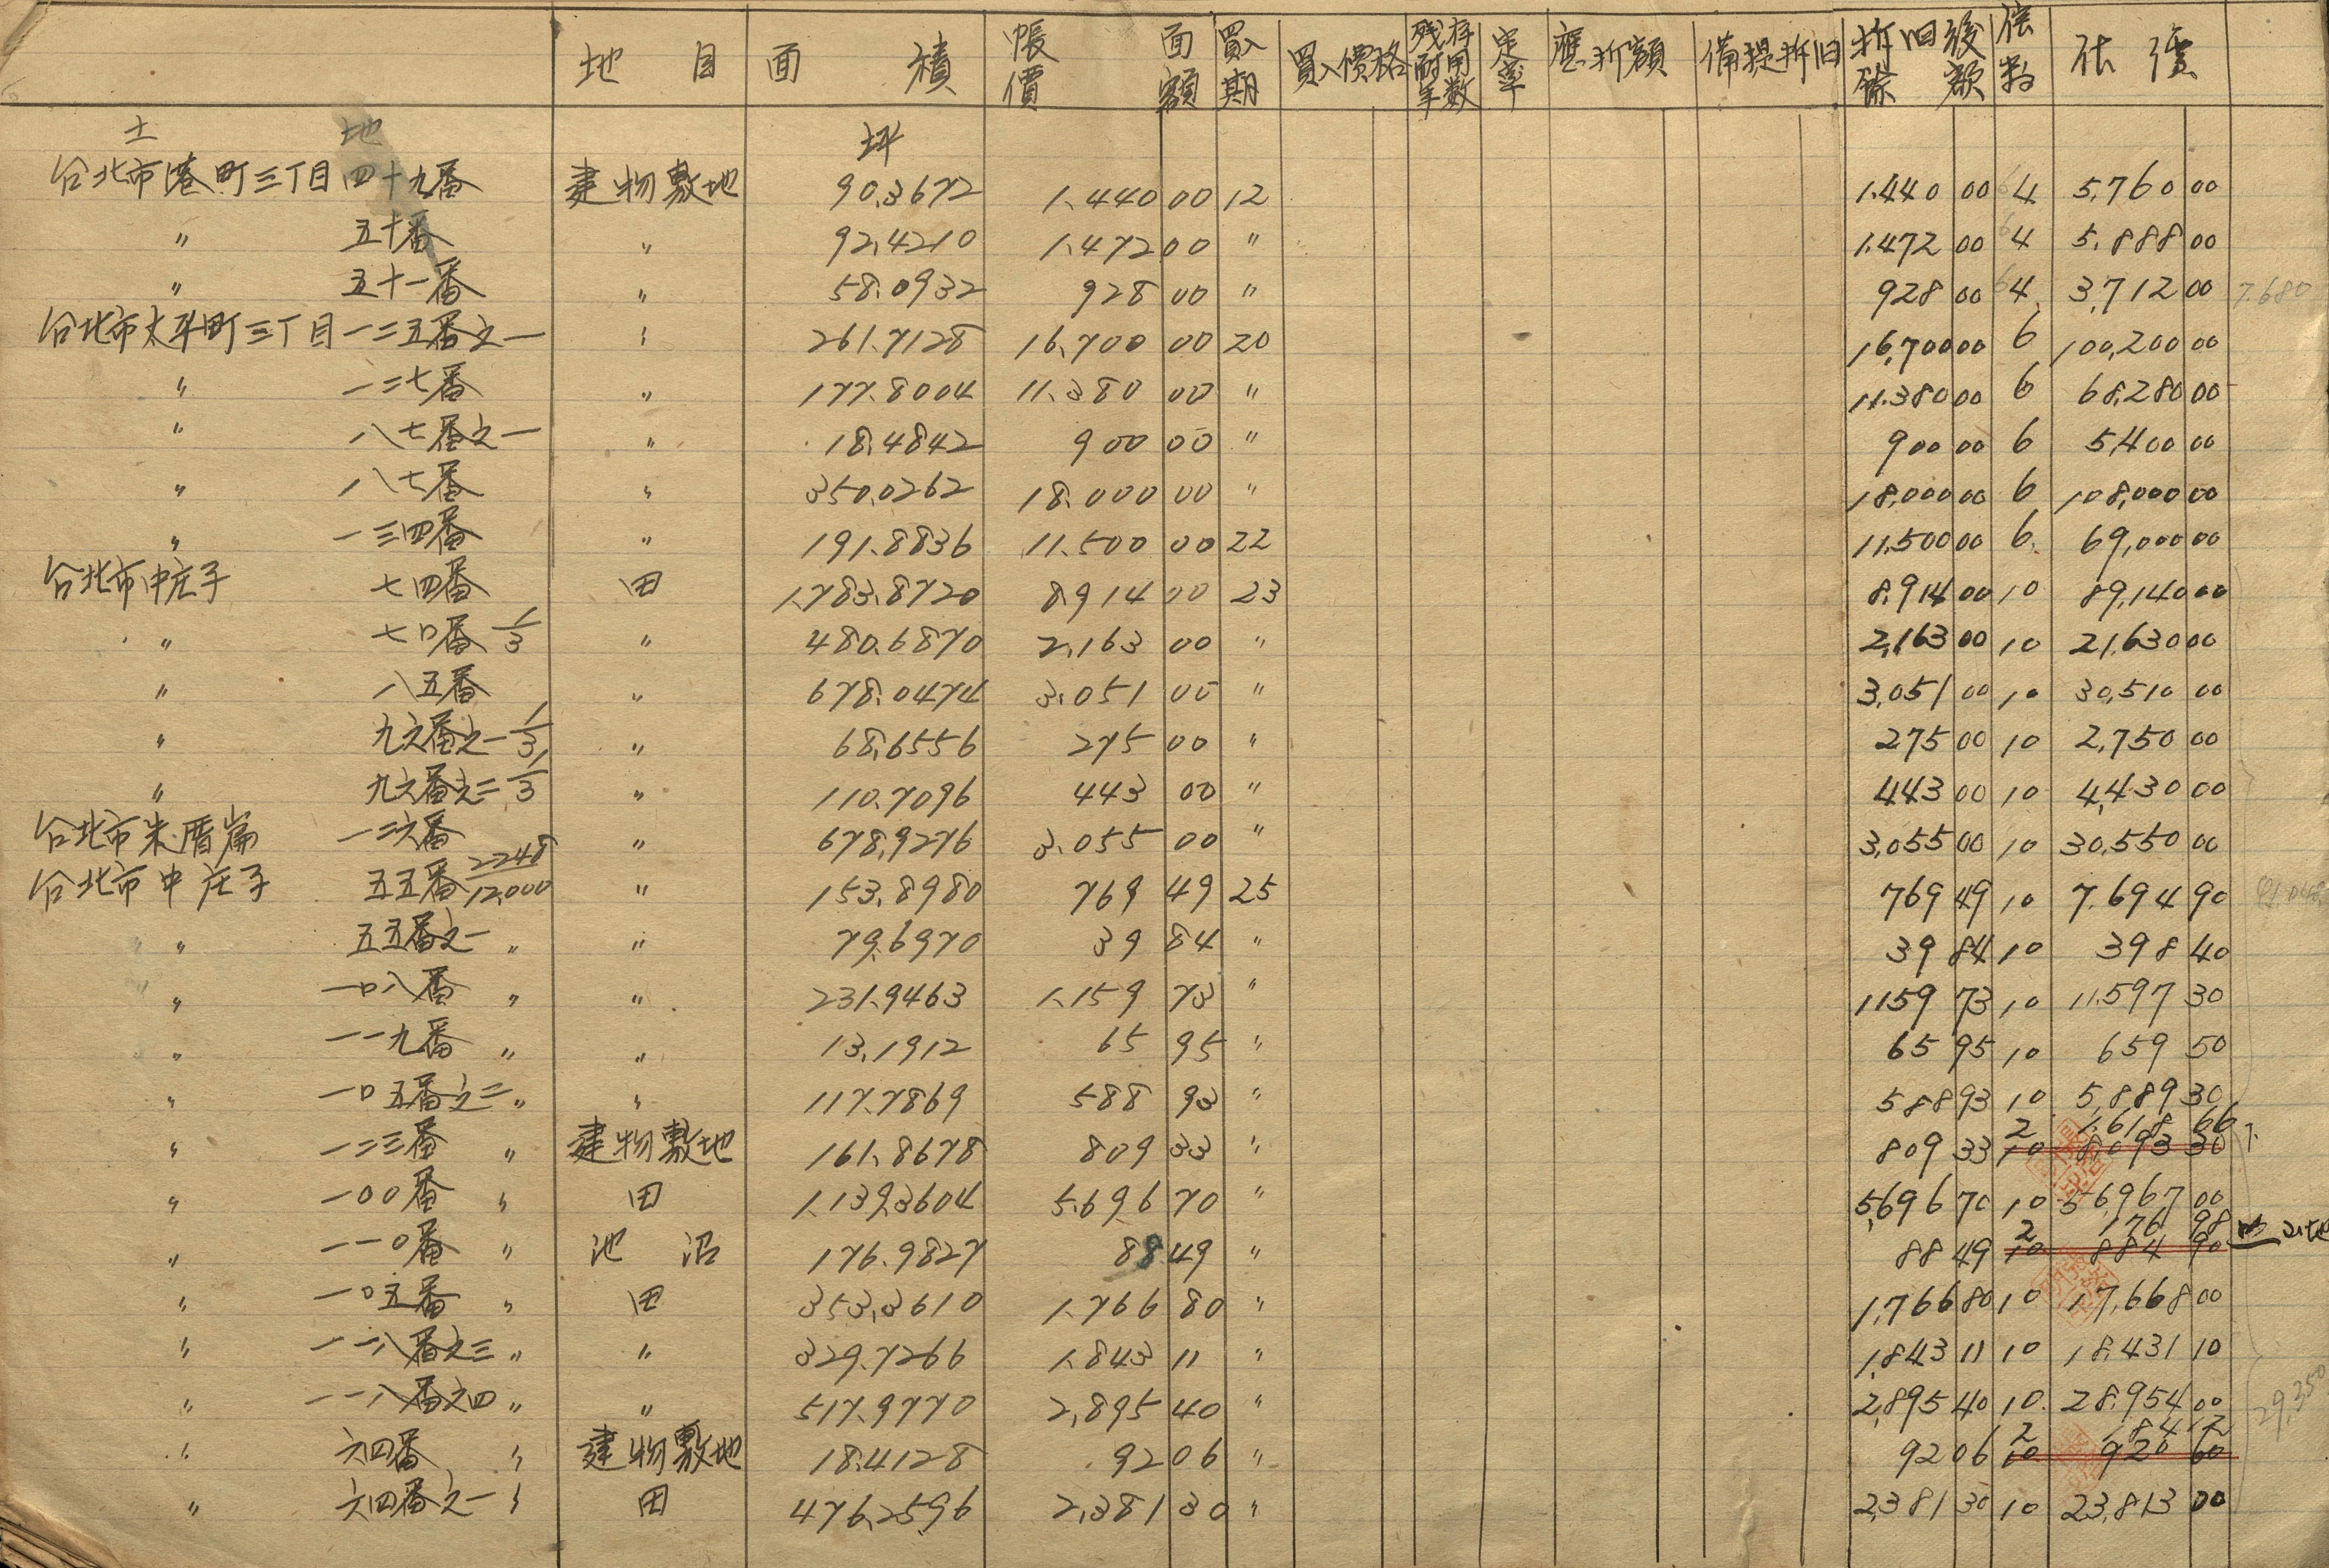 地目 面積 帳面價額 買入期 買入價格 殘存耐用年数 定率 應折額 備提折旧 折旧後餘額 倍数 估價
土地 坪
台北市港町三丁目四十九番 建物敷地 90.3672 1.440 00 12 1.440 00 4 5,760 00
〃 五十番 〃 92.4210 1.472 00 〃 1.472 00 4 5.888 00
〃 五十一番 〃 58.0932 928 00 〃 928 00 4 3,712 00 7.680
台北市太平町三丁目一二五番之一 〃 261.7128 16.700 00 20 16,700 00 6 100,200 00
〃 一二七番 〃 177.8004 11.380 00 〃 11.380 00 6 68,280 00
〃 八七番之一 〃 18.4842 900 00 〃 900 00 6 5,400 00
〃 八七番 〃 350.0262 18.000 00 〃 18,000 00 6 108,000 00
〃 一三四番 〃 191.8836 11.500 00 22 11,500 00 6 69,000 00
台北市中庄子 七四番 田 1.783.8720 8.914 00 23 8,914 00 10 89,140 00
〃 七〇番 1/3 〃 480.6870 2,163 00 〃 2,163 00 10 21,630 00
〃 八五番 〃 678.0474 3.051 00 〃 3,051 00 10 30,510 00
〃 九六番之一 1/3 〃 68.6556 275 00 〃 275 00 10 2,750 00
〃 九六番之二 1/3 〃 110.7096 443 00 〃 443 00 10 4,430 00
台北市朱厝崙 一二六番 〃 678.9276 3.055 00 〃 3,055 00 10 30,550 00
台北市中庄子 五五番 2248/12,000 〃 153.8980 769 49 25 769 49 10 7,694 90
〃 五五番之一 〃 〃 79.6970 39 84 〃 39 84 10 398 40
〃 一〇八番 〃 〃 231.9463 1.159 73 〃 1159 73 10 11.597 30
〃 一一九番 〃 〃 13.1912 65 95 〃 65 95 10 659 50
〃 一〇五番之二 〃 〃 117.7869 588 93 〃 588 93 10 5,889 30
2 1,618 66
〃 一二三番 〃 建物敷地 161.8678 809 33 〃 809 33 10 8,093 30
〃 一〇〇番 〃 田 1.139.3604 5.696 70 〃 5,696 70 10 56,967 00
2 176 98
〃 一一〇番 〃 池沼 176.9827 88 49 〃 88 49 10 884 90
〃 一〇五番 〃 田 353.3610 1.766 80 〃 1,766 80 10 17,668 00
〃 一一八番之三 〃 〃 329.7266 1.843 11 〃 1,843 11 10 18,431 10
〃 一一八番之四 〃 〃 517.9770 2,895 40 〃 2,895 40 10 28,954 00 29,350
2 184 12
〃 六四番 〃 建物敷地 18.4128 92 06 〃 92 06 10 920 60
〃 六四番之一 〃 田 476.2596 2,381 30 〃 2,381 30 10 23,813 00